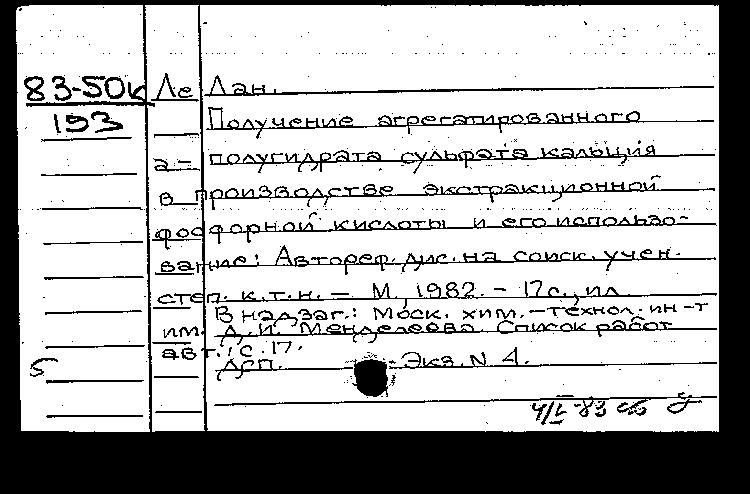 83-50к Ле Лан.
193 Получение агрегатированного
α- полугидрата сульфата кальция
в производстве экстракционной
фосфорной кислоты и его использо-
вание: Автореф. дис. на соиск. учен.
степ. к.т.н. – М., 1982. – 17с., ил
В надзаг.: Моск. хим.-технол. ин-т
им. Д.И. Менделеева. Список работ
авт.: с. 17.
5 Дсп. Экз. N 4.
4/I-83